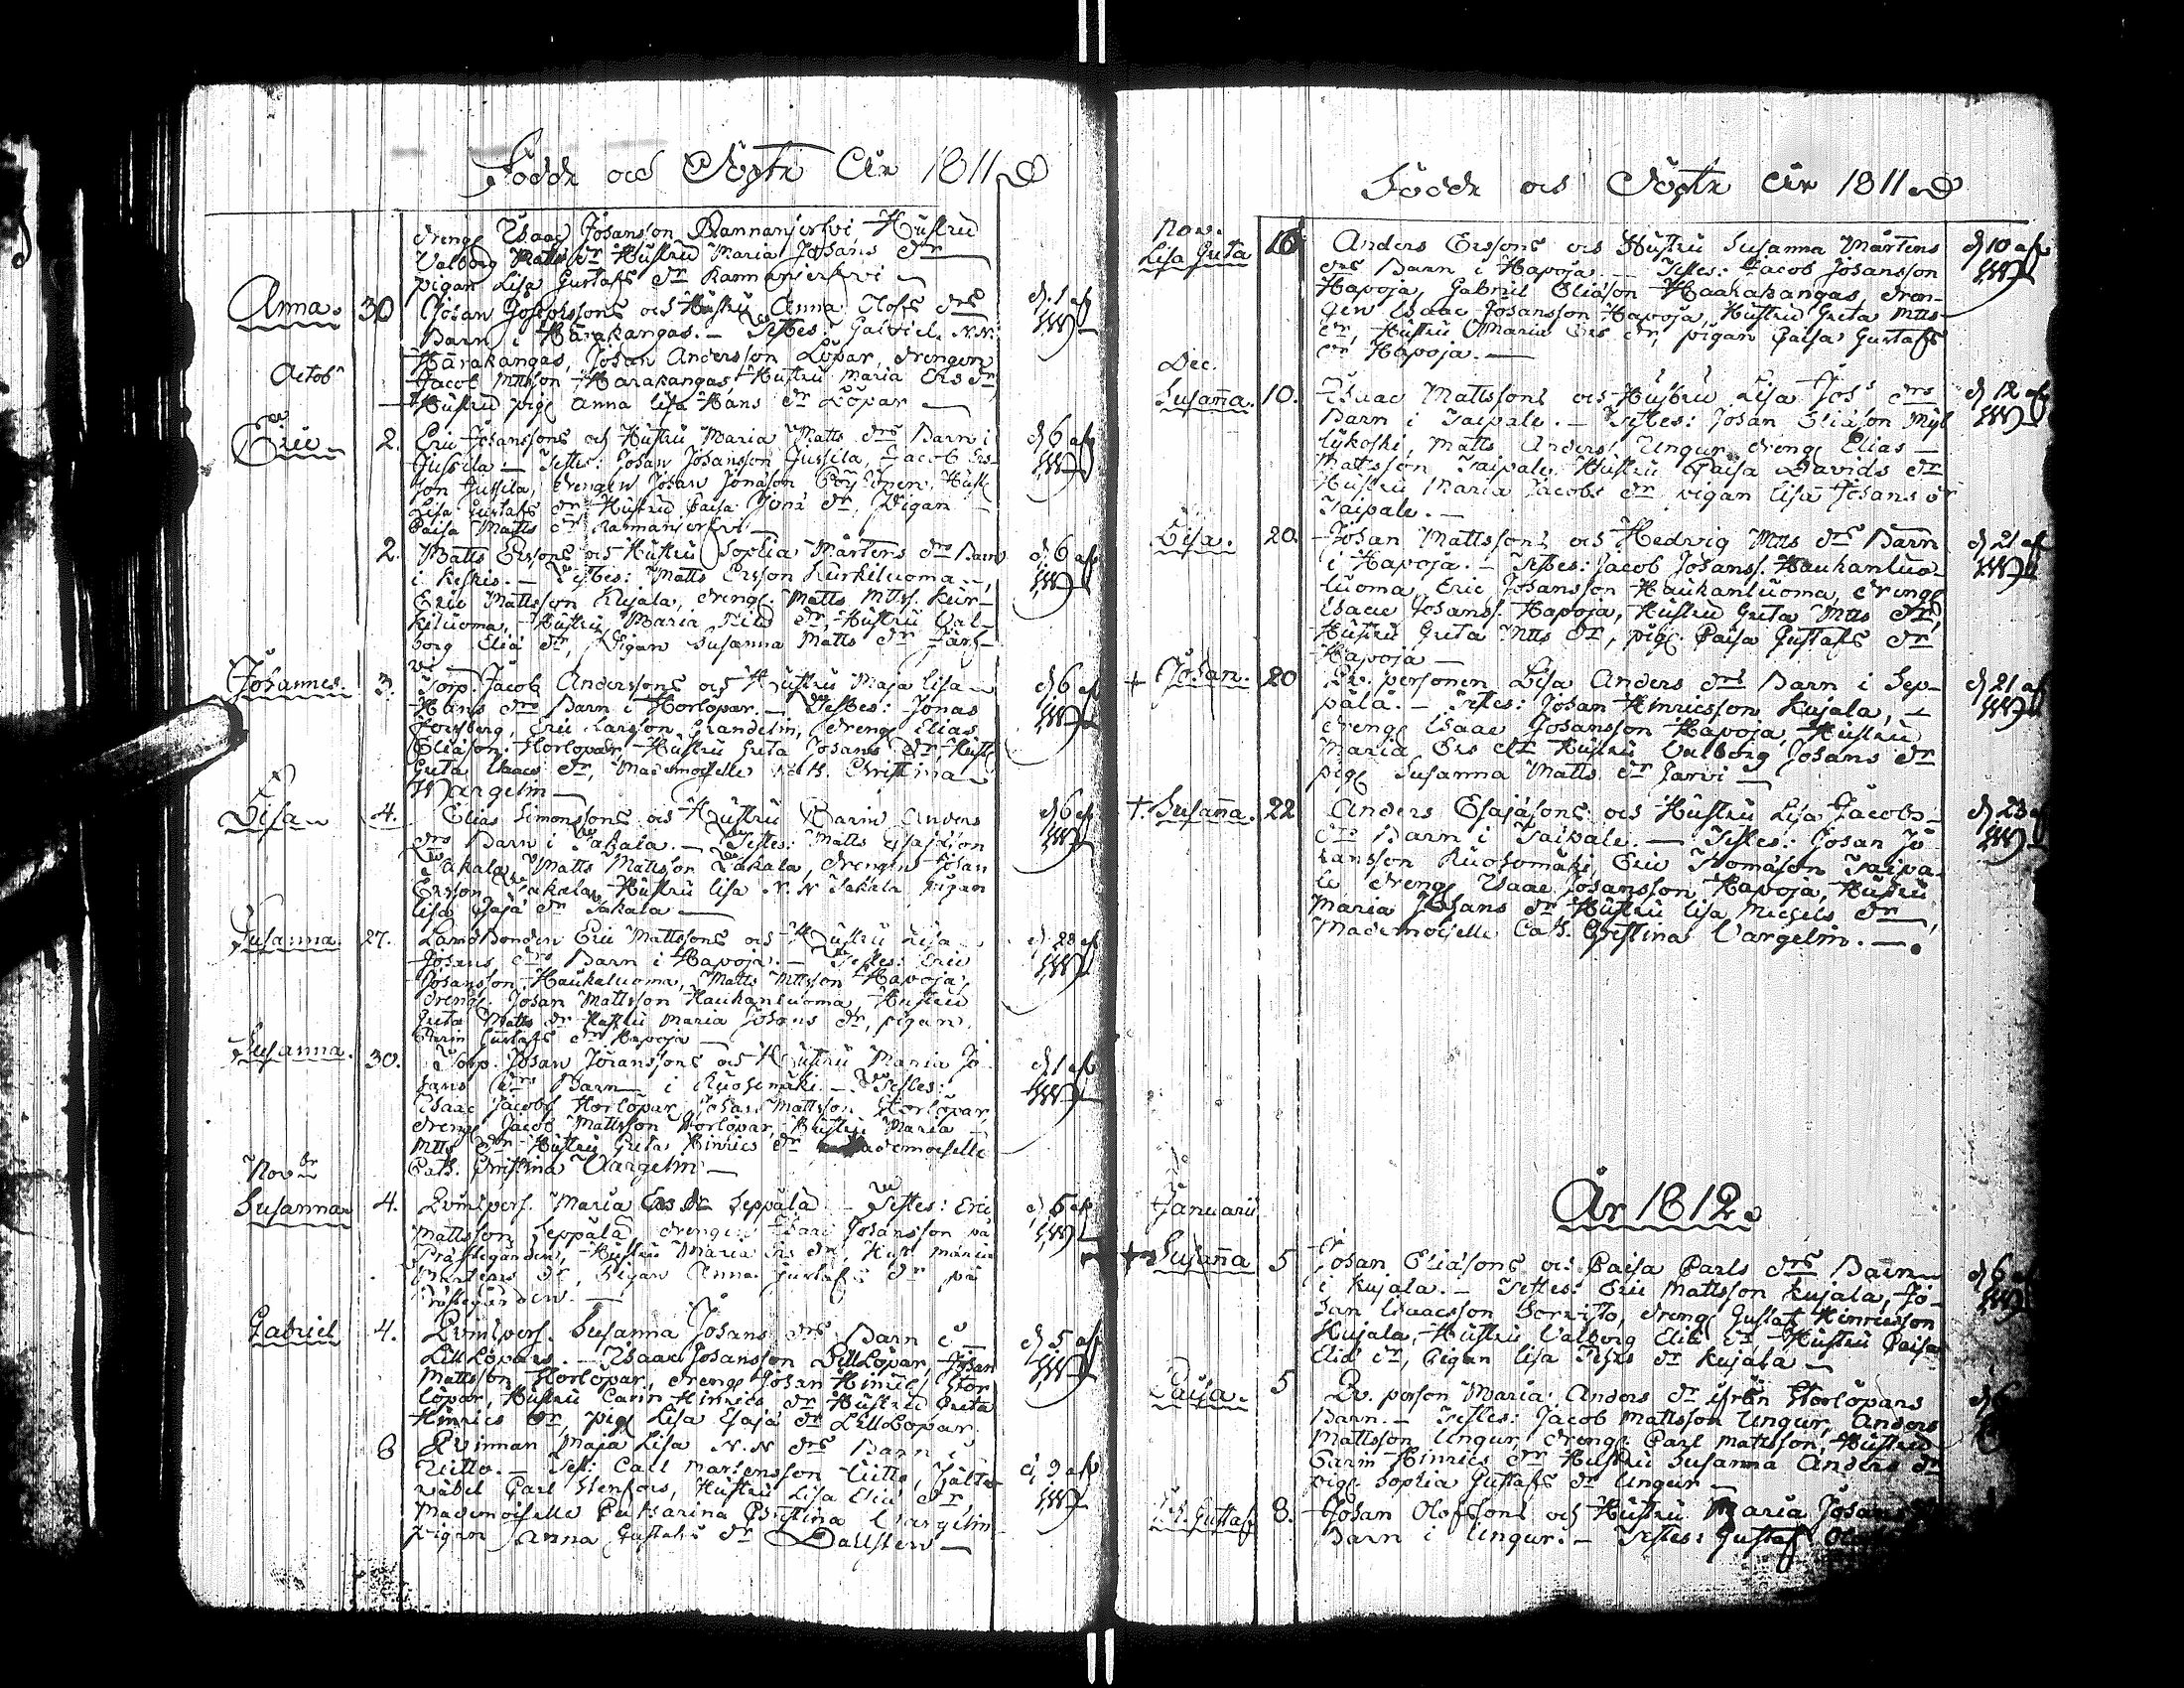 Födde och Döpte År 1811
dreng Isaac Johansson Rannanjerfvi Hustru
Valborg Matts dr Hustru Maria Johans dr
pigan Lisa Gustafs dr Rannanjerfvi
Anna. 30 Johan Josephssons och Hustru Anna Olofs drs d. 1 af
Barn i Harakangas. — Testes: Gabriel N.N.
Harakangas, Johan Andersson Löpar, drengen
Octobr Jacob Mttsson Harakangas Hustru Maria Ers dr,
Hustru pig Anna Lisa Hans dr Löpar
Eric 2. Eric Johanssons och Hustru Maria Matts drs Barn i d 6 af
Jussila. — Testes: Johan Johansson Jussila, Jacob Ers-
son Jussila, drengen Johan Jonäson Hust
Lisa Gustafs dr Hustru Caisa Jonä dr, Pigan
Caisa Matts dr Rannanjerfvi —
2. Matts Erssons och Hustru Sophia Mårtens drs Barn d. 6 af
i Keskis. — Testes: Matts Ersson Kurkiluoma,
Eric Mattsson Klijala, dreng Matts Mttss. Kur-
kiluoma, Hustru Maria dr, Hustru Val-
borg Eliä dr, Pigan Susanna Matts dr Järf-
vi —
Johannes 3. Torp. Jacob Anderssons och Hustru Maja Lisa d 6 af
Hans drs Barn i Horlöpar. — Testes: Jonas
Forsberg, Eric Larsson Grandelin, dreng Elias
Eliäson Horlöpar, Hustru Greta Johans dr, Hust
Greta Isaacs dr, Mademoiselle Cath. Christina
Wargelin —
Lisa 4. Elias Simonssons och Hustru Carin Anders d 6 af
drs Barn i Takala. — Testes: Matts Esajäson
Takala, Matts Mattsson Takala, drengen Johan
Ersson Takala, Hustru Lisa N.N Takala pigan
Lisa Esajä dr Takala —
Susanna. 27. Landbonden Eric Mattssons och Hustru Lisa d. 28 af
Johans drs Barn i Hapoja. — Testes: Eric
Johansson Haukaluoma, Matts Mttsson Hapoja,
dreng. Johan Mattsson Haukanluoma, Hustru
Greta Matts dr Hustru Maria Johans dr, pigan
Carin Gustafs dr Hapoja —
Susanna. 30. Torp. Johan Johanssons och Hustru Maria Jo- d. 1 af
hans drs Barn i Ruohomäki. — Testes:
Isaac Jacobs Horlöpar, Johan Mattsson Storlöpar,
dreng Jacob Mattsson Horlöpar, Hustru Maria
Mtts dr Hustru Greta Hinrics dr Mademoiselle
Novbr Cath. Christina Vargelin —
Susanna 4. Qvinlpers. Maria Ers dr Seppälä — Testes: Eric d 5 af
Mattsson Seppälä drengen Isaac Johansson på
Prästegården, Hustru Maria Ers dr, Hust Maria
Mårtens dr, Pigan Anna Gustafs dr på
Prästegården. —
Gabriel 4. Qvinlpers. Susanna Johans drs Barn i d 5 af
LillLöpars. — Isaac Johansson LillLöpar, Johan
Mattsson Horlöpar, dreng Johan Hinrics Stor
löpar, Hustru Carin Hinrics dr Hustru Greta
Hinrics dr, pig Lisa Esajä dr LillLöpar.
8 Qvinnan Maja Lisa N.N drs Barn i d 9 af
Uitto. — Test: Carl Mårtensson Uitto, Fält-
väbel Carl Stenfors, Hustru Lisa Eliä dr,
Mademoiselle Catharina Christina Wargelin
pigan Anna Gustafs dr Dahlsten —
Födde och Döpte År 1811
Nov.
Lisa Greta 16 Anders Erssons och Hustru Susanna Mårtens d 10 af
drs Barn i Hapoja. — Testes: Jacob Johansson
Hapoja, Gabriel Eliäson Haarakangas, dren-
gen Isaac Johansson Hapoja, Hustru Greta Mtts
dr, Hustru Maria Ers dr, pigan Caisa Gustafs
dr Hapoja. —
Dec.
Susanna. 10. Isaac Mattssons och Hustru Lisa Johs drs d 12 af
Barn i Taipale. — Testes: Johan Eliäson Myl
lykoski, Matts Anders. Ungur dreng Elias
Mattsson Taipale, Hustru Caisa Davids dr
Hustru Maria Jacobs dr pigan Lisa Johans dr
Taipale. —
Lisa. 20. Johan Mattssons och Hedvig Mtts drs Barn d 21 af
i Hapoja. — Testes: Jacob Johanss. Haukanluo-
luoma, Eric Johansson Haukanluoma, dreng
Isaac Johanss. Hapoja, Hustru Greta Mtts dr,
Hustru Greta Mtts dr, pig. Caisa Gustafs dr
Hapoja —
+ Johan. 20 Qv. personen Lisa Anders drs Barn i Sep- d 21 af
pälä. — Testes: Johan Hinricsson Kujala,
dreng Isaac Johansson Hapoja, Hustru
Maria Ers dr Hustru Valborg Johans dr
pig Susanna Matts dr Jarvi —
+. Susanna. 22 Anders Esajäsons och Hustru Lisa Jacobs d 23
drs Barn i Taipale. — Testes: Johan Jo-
hansson Ruohomäki, Eric Thomäson Taipa-
le dreng Isaac Johansson Hapoja, Hustru
Maria Johans dr Hustru Lisa Michels dr
Mademoiselle Cath. Christina Vargelin. —
År 1812
Januarii
+ Susanna 5 Johan Eliäsons och Caisa Carls drs Barn d 6
i Kujala. — Testes: Eric Mattsson Kujala, Jo-
han Isaacsson dreng Gustaf Hinricsson
Kujala, Hustru Valborg Eliä dr Hustru Caisa
Eliä dr, Pigan Lisa dr Kujala —
Caisa. 5 Qv. person Maria Anders dr ifrån Storlöpars d 6
Barn. — Testes: Jacob Mattsson Ungur, Anders
Mattsson Ungur, dreng. Carl Mattsson, Hustru
Carin Hinrics dr Hustru Susanna Anders dr
pig. Sophia Gustafs dr Ungur —
Gustaf 8. Johan Olofssons och Hustru Maria Johans
Barn i Ungur. — Testes: Gustaf